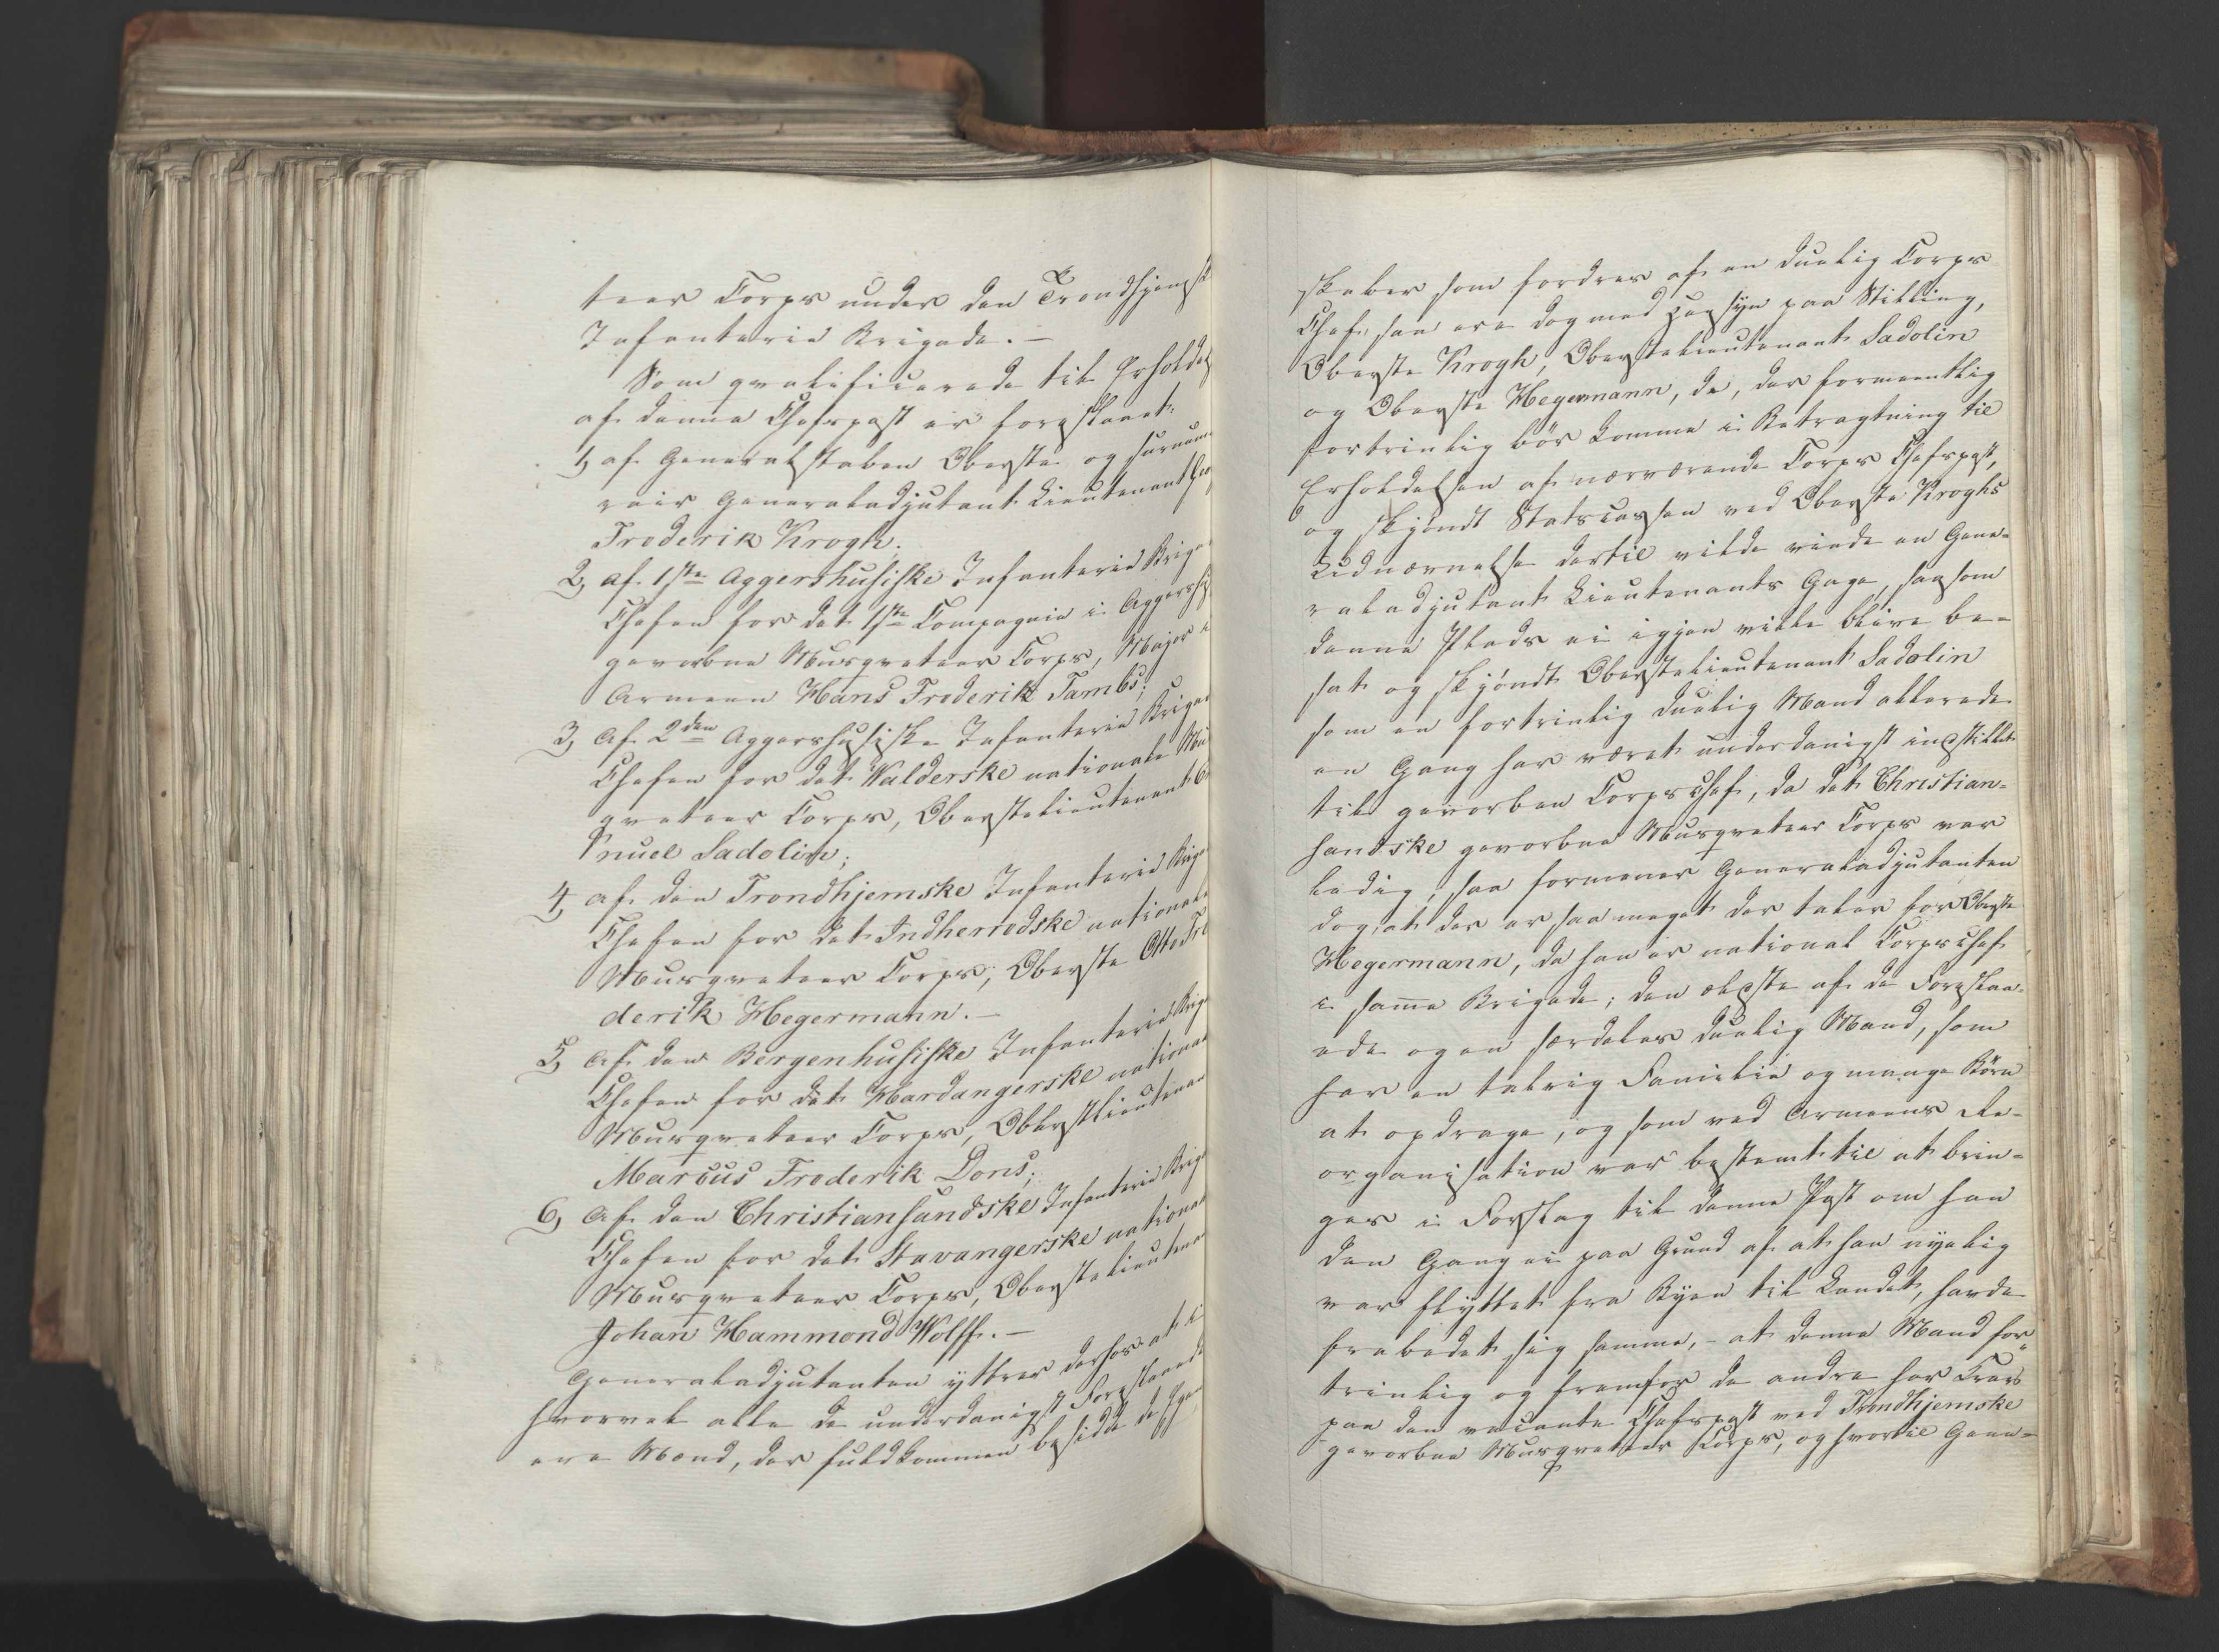 teer Corps under den Trondhjemsk
Infanterie Brigade. —
Som qvalificerede til Erholdel
af denne Chefspost er foreslaaet:
1, af Generalstaben Oberste og surnume
rair Generaladjutant Lieutenant
Frederik Krogh.
2, af 1ste Aggershusiske Infanterie Briga
Chefen for det 1ste Compagnie i Aggershu
gevorbne Musqveteer Corps, Major i
Armeen Hans Frederik Tambs;
3, Af 2den Aggershusiske Infanterie Brigad
Chefen for det Walderske nationale Mu
qveteer Corps, Oberstelieutenant
Knuel Sadolin;
4, af den Trondhjemske Infanterie Briga
Chefen for det Indherredske nationale
Musqveteer Corps, Oberste Otto Fre
derik Hegermann. —
5, Af den Bergenhusiske Infanterie Brig
Chefen for det Hardangerske national
Musqveteer Corps, Oberstlieutenan
Marcus Frederik Dons;
6, Af den Christiansandske Infanterie Brig
Chefen for det Stavangerske national
Musqveteer Corps, Oberstelieutena
Johan Hammond Wolff. —
Generaladjutanten yttrer derhos at i
hvorvel alle de underdanigst Foreslaaede
ere Mænd, der fuldkommen besidde de Egen
skaber som fordres af en duelig Corps
Chef, saa ere dog med Hensyn paa Stilling,
Oberste Krogh, Oberstelieutenant Sadolin
og Oberste Hegermann, de, der formeentlig
fortrinlig bør komme i Betragtning til
Erholdelsen af nærværende Corps Chefspost,
og skjøndt Statscassen ved Oberste Kroghs
Udnævnelse dertil vilde vinde en Gene-
raladjutant Lieutenants Gage, saasom
denne Plads ei igjen vilde blive be-
sat og skjøndt Oberstelieutenant Sadolin
som en fortrinlig duelig Mand allerede
en Gang har været underdanigst indstillet
til gevorben Corpschef, da det Christian-
sandske gevorbne Musqveteer Corps var
ledig, saa formener Generaladjutanten
dog, at der er saa meget der taler for Oberste
Hegermann, da han er national Corpschef
i samme Brigade; den ældste af de Foreslaa-
ede og en særdeles duelig Mand, som
har en talrig Familie og mange Børn
at opdrage, og som ved Armeens Re-
organisation var bestemt til at brin-
ges i Forslag til denne Post om han
den Gang ei paa Grund af at han nyelig
var flyttet fra Byen til Landet, havde
frabedet sig samme, — at denne Mand for-
trinlig og fremfor de andre har Krav
paa den vacante Chefspost ved Trondhjemske
gevorbne Musqveteer Corps, og hvortil Gene-